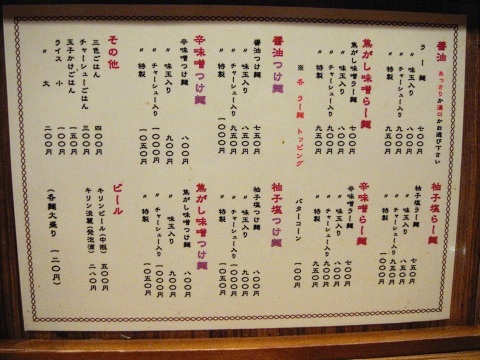 醤油 あっさりか濃口かお選び下さい
らー麺 七〇〇円
〃 味玉入り 八〇〇円
〃 チャーシュー入り 九〇〇円
〃 特製 九五〇円
焦がし味噌らー麺
焦がし味噌らー麺 七〇〇円
〃 味玉入り 八〇〇円
〃 チャーシュー入り 九〇〇円
〃 特製 九五〇円
※各らー麺トッピング
バターコーン 一〇〇円
醤油つけ麺
醤油つけ麺 七五〇円
〃 味玉入り 八五〇円
〃 チャーシュー入り 九五〇円
〃 特製 一〇〇〇円
辛味噌つけ麺
辛味噌つけ麺 八〇〇円
〃 味玉入り 九〇〇円
〃 チャーシュー入り 一〇〇〇円
〃 特製 一〇五〇円
その他
三色ごはん 四〇〇円
チャーシューごはん 三〇〇円
玉子かけごはん 一五〇円
ライス 小 一〇〇円
〃 大 二〇〇円
柚子塩らー麺
柚子塩らー麺 七五〇円
〃 味玉入り 八五〇円
〃 チャーシュー入り 九五〇円
〃 特製 一〇〇〇円
辛味噌らー麺
辛味噌らー麺 七〇〇円
〃 味玉入り 八〇〇円
〃 チャーシュー入り 九〇〇円
〃 特製 九五〇円
柚子塩つけ麺
柚子塩つけ麺 八〇〇円
〃 味玉入り 九〇〇円
〃 チャーシュー入り 一〇〇〇円
〃 特製 一〇五〇円
焦がし味噌つけ麺
焦がし味噌つけ麺 八〇〇円
〃 味玉入り 九〇〇円
〃 チャーシュー入り 一〇〇〇円
〃 特製 一〇五〇円
ビール
キリンビール(中瓶) 五〇〇円
キリン淡麗(発泡酒) 二八〇円
(各麺大盛り 一二〇円)